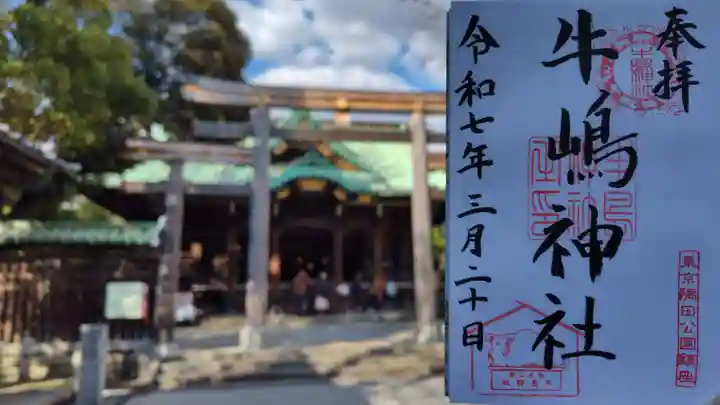 奉拝
牛嶋神社
令和七年三月二十日
東京隅田公園鎮座